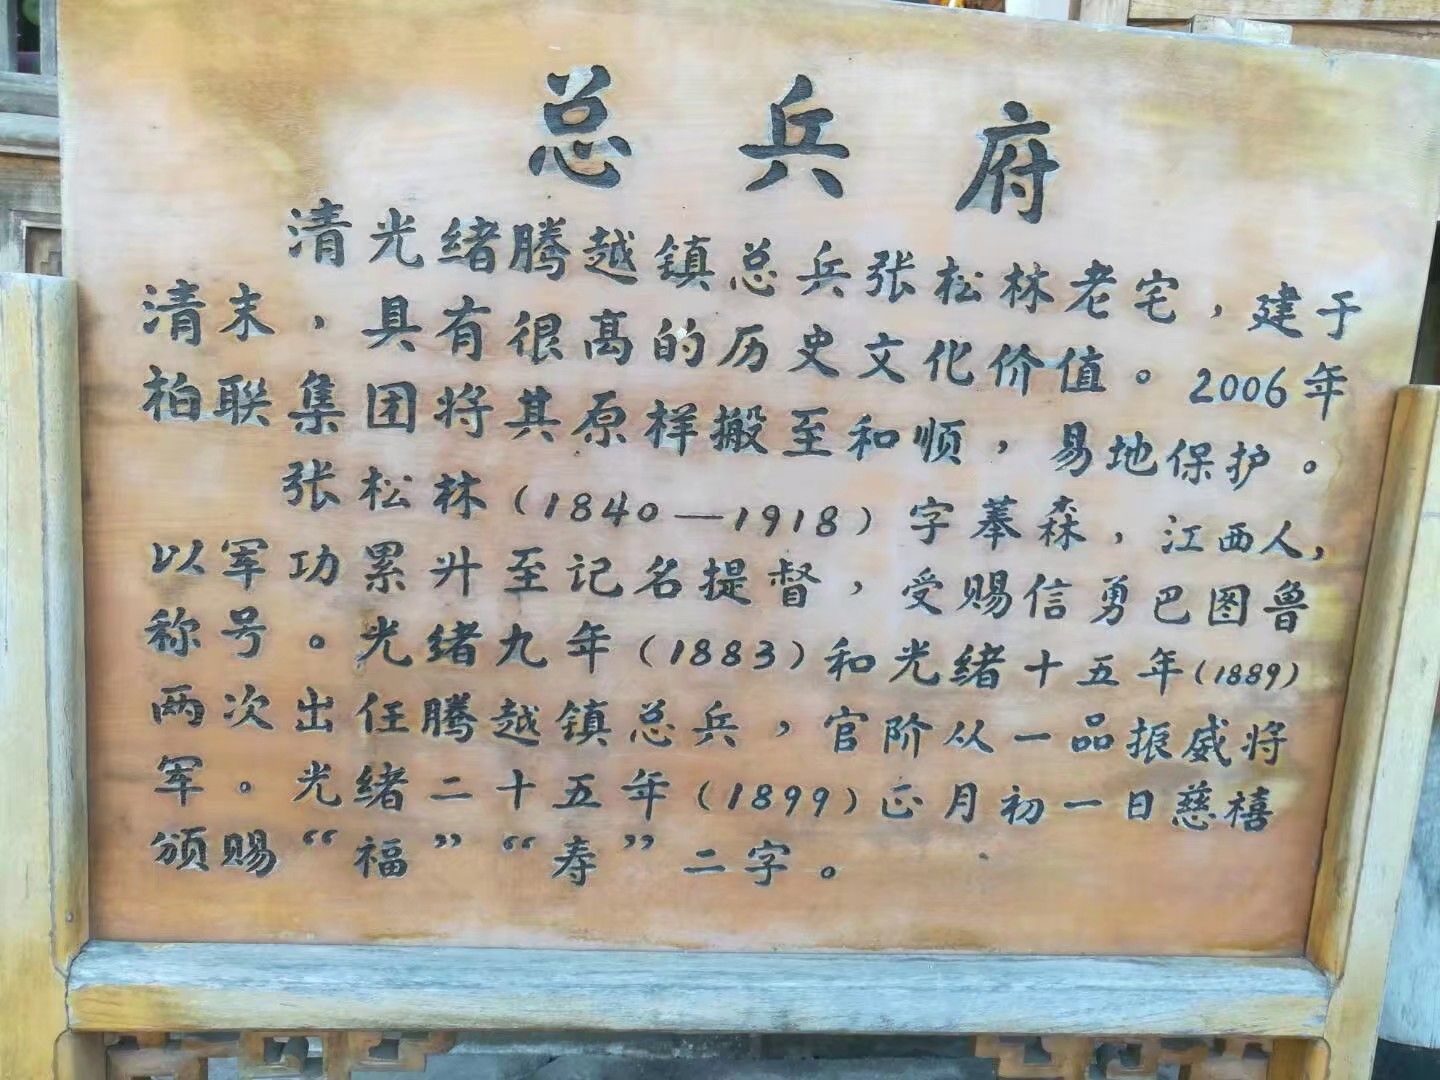 总兵府
清光绪腾越镇总兵张松林老宅，建于
清末，具有很高的历史文化价值。2006年
柏联集团将其原样搬至和顺，易地保护。
张松林（1840—1918）字蓁森，江西人，
以军功累升至记名提督，受赐信勇巴图鲁
称号。光绪九年（1883）和光绪十五年（1889）
两次出任腾越镇总兵，官阶从一品振威将
军。光绪二十五年（1899）正月初一日慈禧
颁赐“福”“寿”二字。